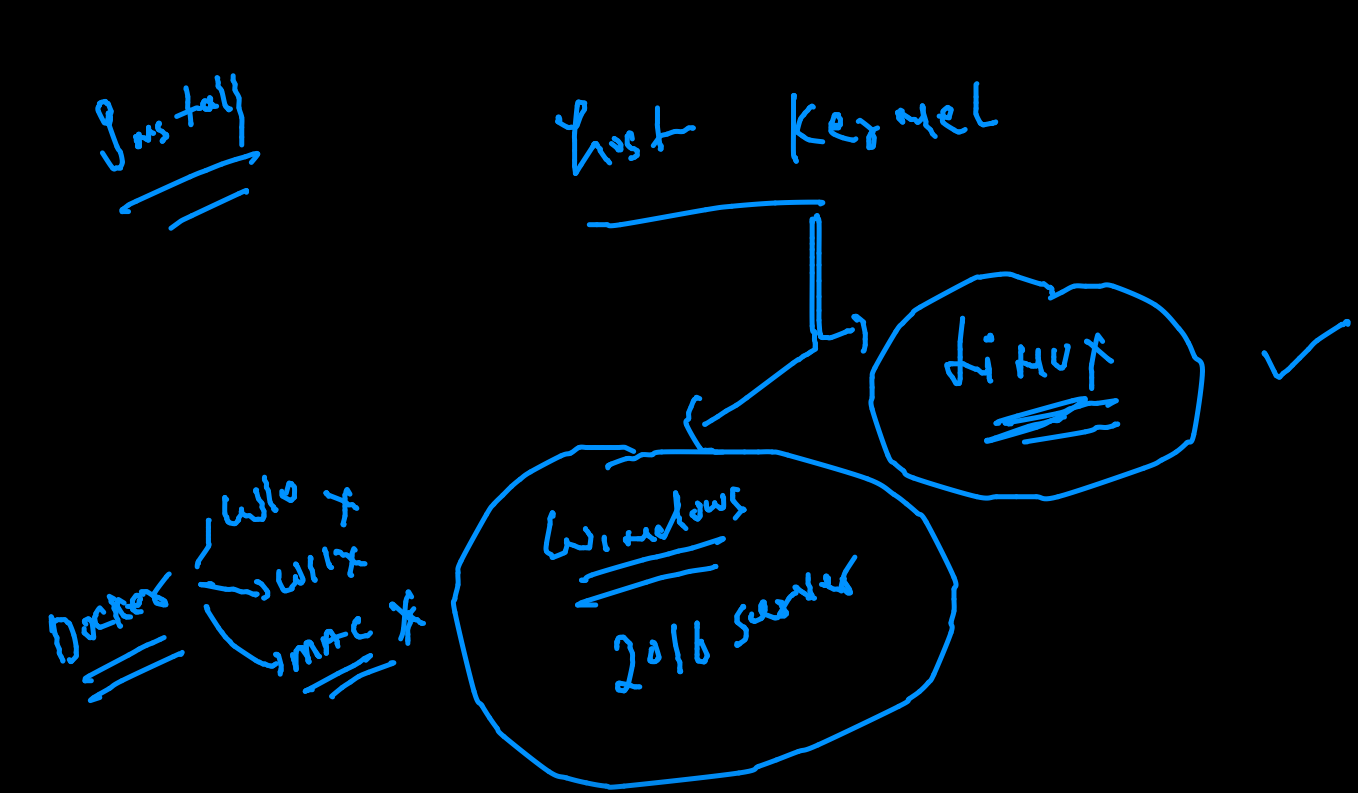 Install
host Kernel
Linux
Windows
2016 server
Docker
W10 x
W11 x
MAC x